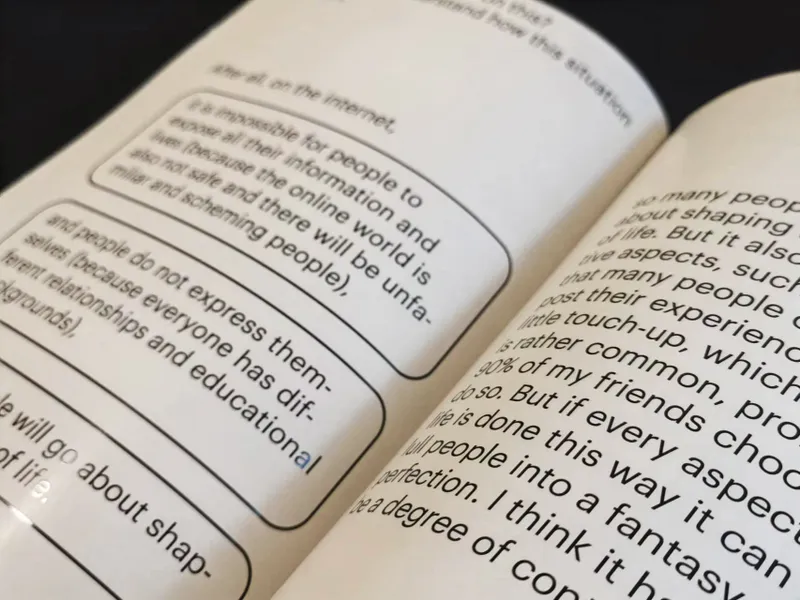 on this?
how this situation
After all, on the internet,
it is impossible for people to
expose all their information and
lives (because the online world is
also not safe and there will be unfa-
miliar and scheming people),
and people do not express them-
selves (because everyone has dif-
ferent relationships and educational
kgrounds),
le will go about shap-
of life.
so many peop
about shaping
of life. But it also
tive aspects, such
that many people
post their experienc
little touch-up, which
is rather common, pro
90% of my friends choo
do so. But if every aspect
life is done this way it can
lull people into a fantasy
perfection. I think it ha
be a degree of con